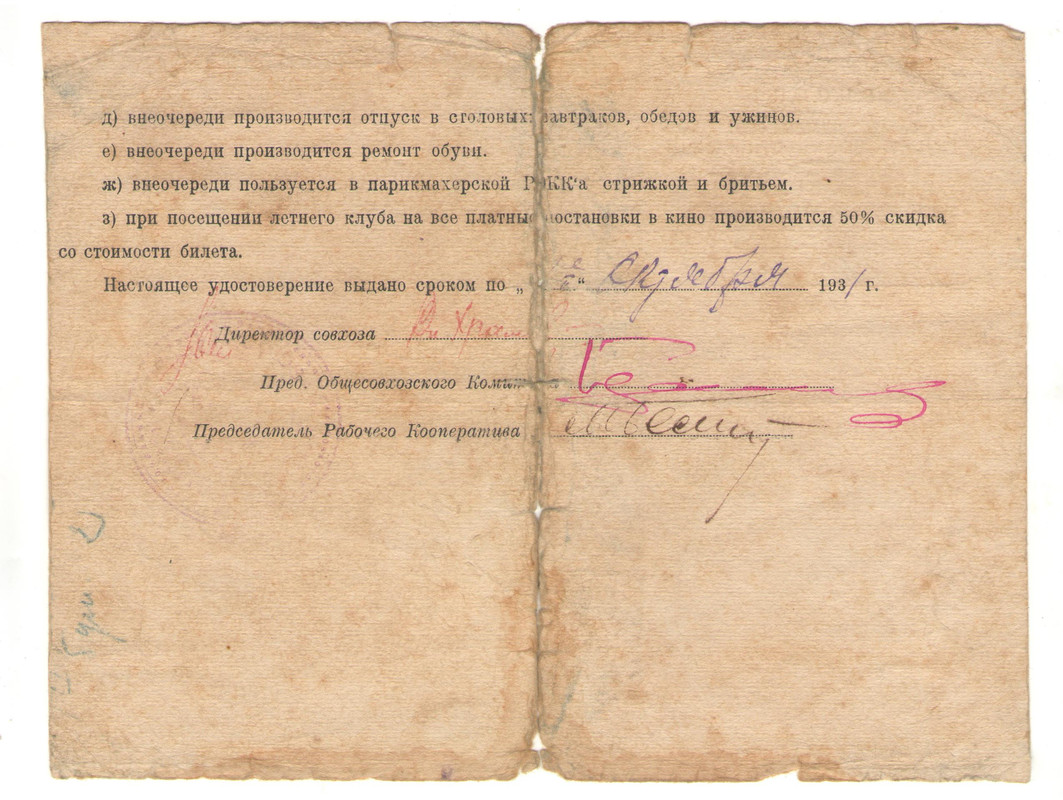 д) внеочереди производится отпуск в столовых завтраков, обедов и ужинов.
е) внеочереди производится ремонт обуви.
ж) внеочереди пользуется в парикмахерской РОКК'а стрижкой и бритьем.
з) при посещении летнего клуба на все платные постановки в кино производится 50% скидка
со стоимости билета.
Настоящее удостоверение выдано сроком по „ “ октября 1931 г.
Директор совхоза
Пред. Общесовхозского Комит
Председатель Рабочего Кооператива